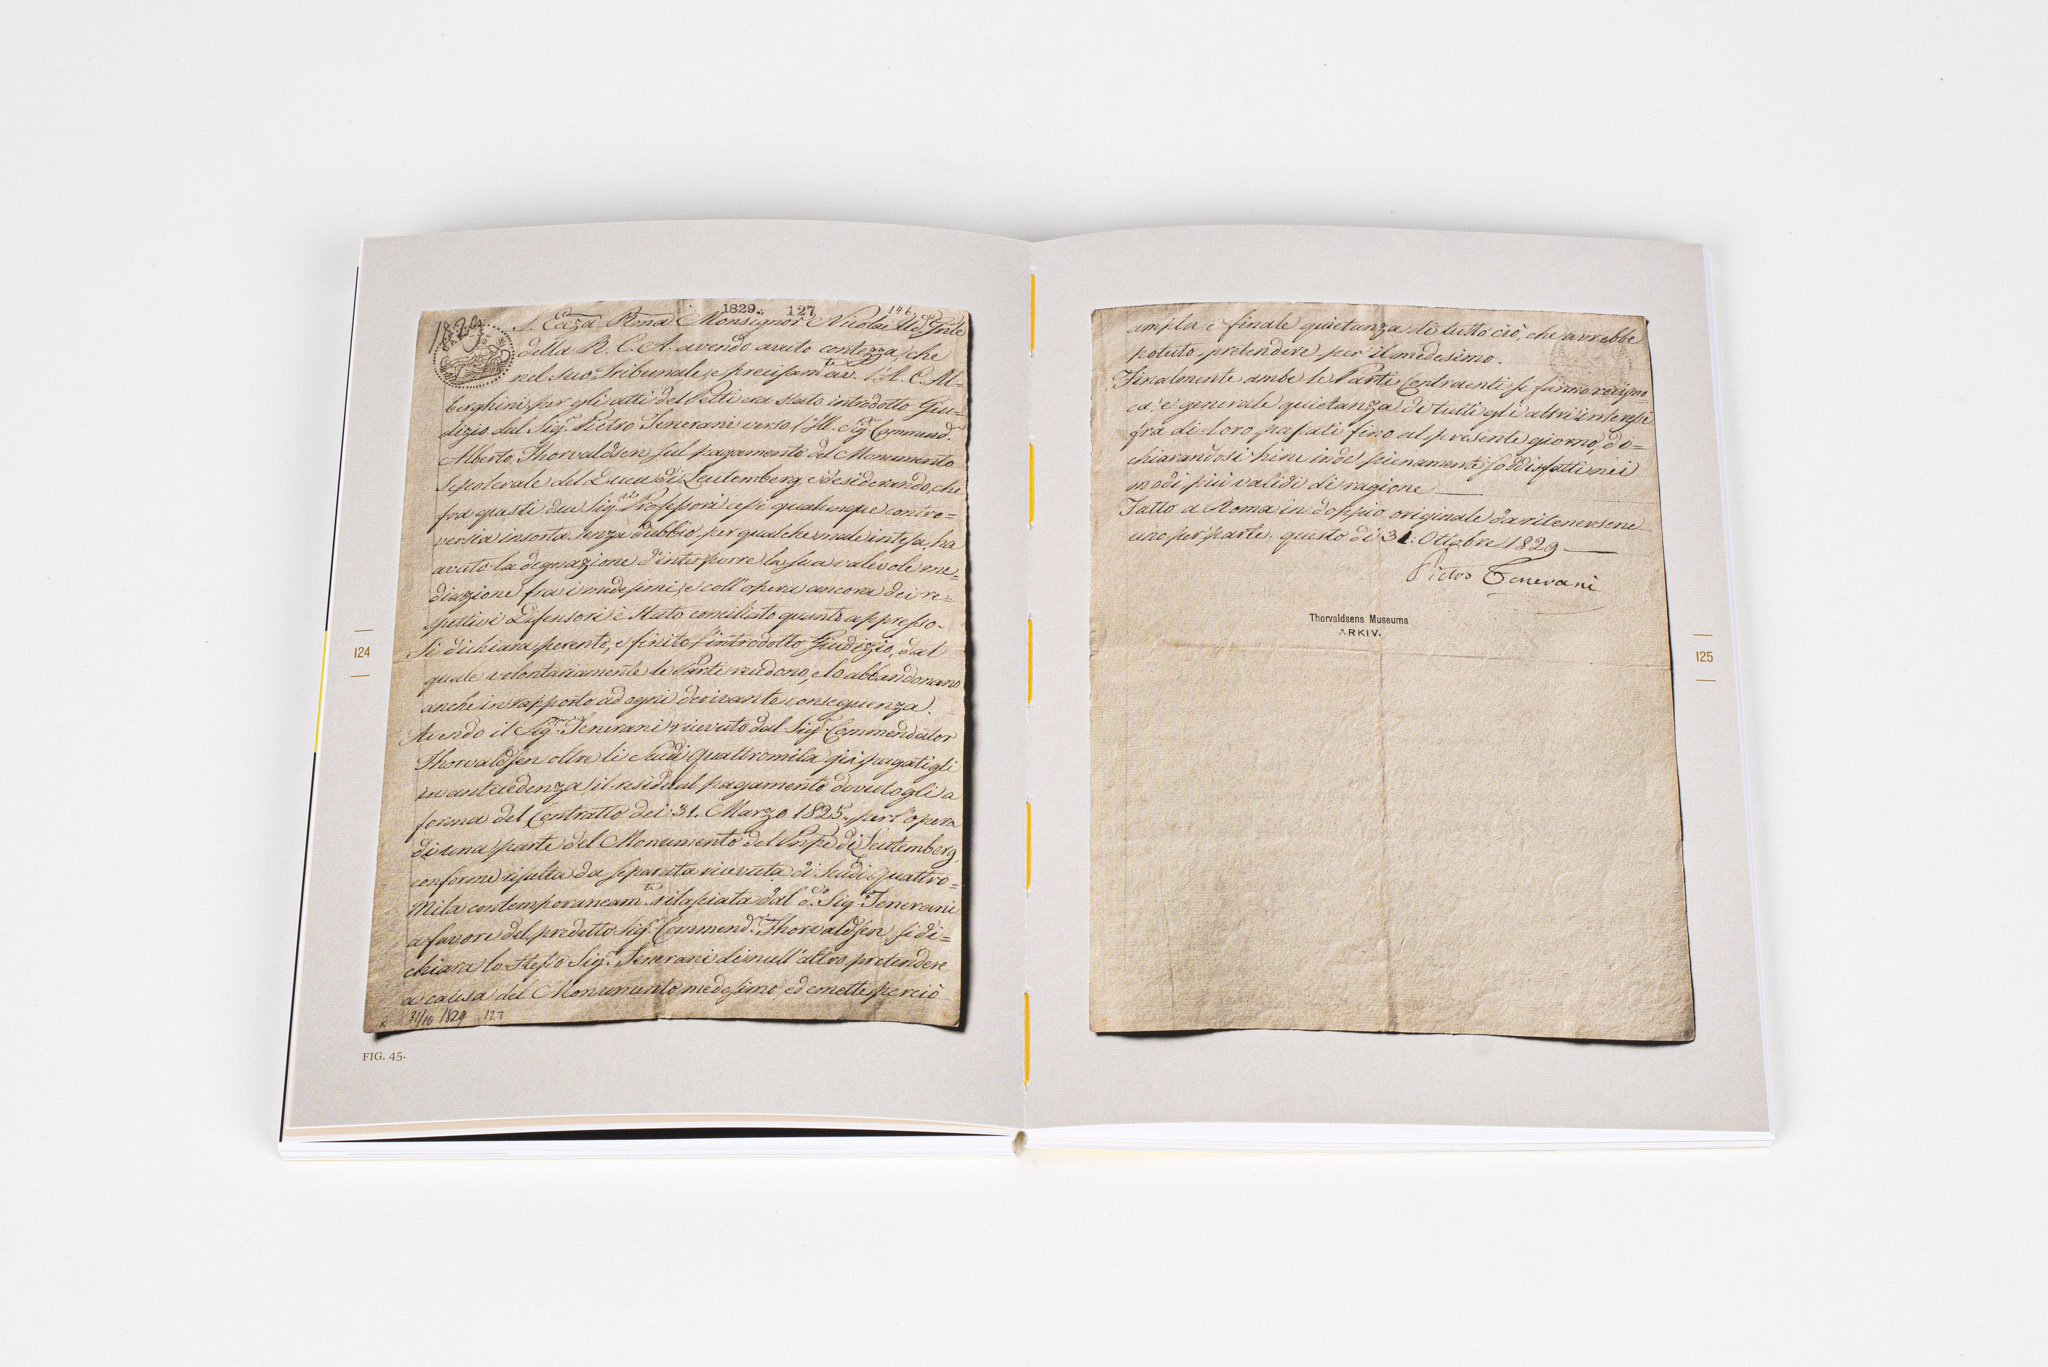 1829. 127 146
1829
S. Ecc.za Rma Monsignor Nicolai Ud.e Gnle
della R. C. A. avendo avuto contezza, che
nel suo Tribunale, e precisam.te av. l'A. C. Al-
berghini per gli atti del Petti era stato introdotto Giu-
dizio dal Sig.r Pietro Tenerani verso l'Ill. Sig.r Commend.r
Alberto Thorvaldsen sul pagamento del Monumento
Sepolcrale del Duca di Leutemberg, e desiderando, che
fra questi due Sig.ri Professori cessi qualunque contro=
versia insorta senza dubbio per qualche male intesa, ha
avuto la degnazione d'interporre la sua valevole me=
diazione fra i medesimi, e coll'opera ancora dei re=
spettivi Difensori è stato conciliato quanto appresso.
Si dichiara perento, e finito l'introdotto Giudizio, dal
quale volontariamente le Parti recedono, e lo abbandonano
anche in rapporto ad ogni derivante conseguenza.
Avendo il Sig.r Tenerani ricevuto dal Sig.r Commendator
Thorvaldsen oltre li scudi quattromila già pagatigli
in antecedenza il residual pagamento dovutogli a
forma del Contratto dei 31. Marzo 1825. per l'opera
di una parte del Monumento del Pnpe di Leutemberg,
conforme risulta da separata ricevuta di scudi quattro=
Mila contemporaneam.te rilasciata dal d.o Sig.r Tenerani
a favore del predetto Sig.r Commend.r Thorvaldsen si di=
chiara lo stesso Sig.r Tenerani di null'altro pretendere
a causa del Monumento medesimo, ed emette perciò
31/10 1829 127
124
FIG. 45.
ampla e finale quietanza di tutto ciò, che avrebbe
potuto pretendere per il medesimo.
Finalmente ambe le Parti Contraenti si fanno
ca, e generale quietanza di tutti gli altri interessi
fra di loro passati fino al presente giorno, di=
chiarandosi hinc inde pienamente soddisfatti nei
modi più validi di ragione
Fatto a Roma in doppio originale da ritenersene
uno per parte. questo dì 31. Ottobre 1829
Pietro Tenerani
Thorvaldsens Museums
ARKIV.
125